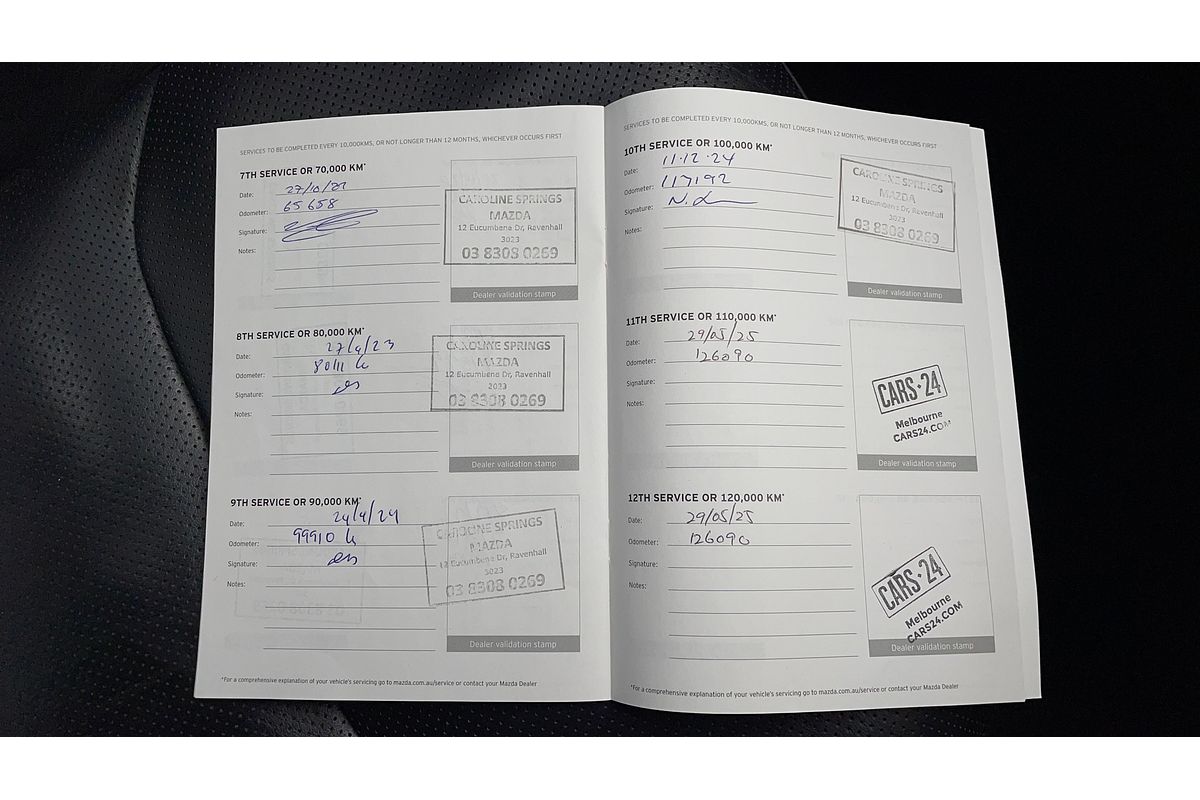 SERVICES TO BE COMPLETED EVERY 10,000KMS, OR NOT LONGER THAN 12 MONTHS, WHICHEVER OCCURS FIRST
7TH SERVICE OR 70,000 KM*
Date: 27/10/22
Odometer: 65658
Signature:
Notes:
CAROLINE SPRINGS
MAZDA
12 Eucumbene Dr, Ravenhall
3023
03 8308 0269
Dealer validation stamp
8TH SERVICE OR 80,000 KM*
Date: 27/4/23
Odometer: 80111 k
Signature:
Notes:
CAROLINE SPRINGS
MAZDA
12 Eucumbene Dr, Ravenhall
3023
03 8308 0269
Dealer validation stamp
9TH SERVICE OR 90,000 KM*
Date: 24/4/24
Odometer: 99910 k
Signature:
Notes:
CAROLINE SPRINGS
MAZDA
12 Eucumbene Dr, Ravenhall
3023
03 8308 0269
Dealer validation stamp
*For a comprehensive explanation of your vehicle's servicing go to mazda.com.au/service or contact your Mazda Dealer
SERVICES TO BE COMPLETED EVERY 10,000KMS, OR NOT LONGER THAN 12 MONTHS, WHICHEVER OCCURS FIRST
10TH SERVICE OR 100,000 KM*
Date: 11.12.24
Odometer: 117192
Signature:
Notes:
CAROLINE SPRINGS
MAZDA
12 Eucumbene Dr, Ravenhall
3023
03 8308 0269
Dealer validation stamp
11TH SERVICE OR 110,000 KM*
Date: 29/05/25
Odometer: 126090
Signature:
Notes:
CARS·24
Melbourne
CARS24.COM
Dealer validation stamp
12TH SERVICE OR 120,000 KM*
Date: 29/05/25
Odometer: 126090
Signature:
Notes:
CARS·24
Melbourne
CARS24.COM
Dealer validation stamp
*For a comprehensive explanation of your vehicle's servicing go to mazda.com.au/service or contact your Mazda Dealer